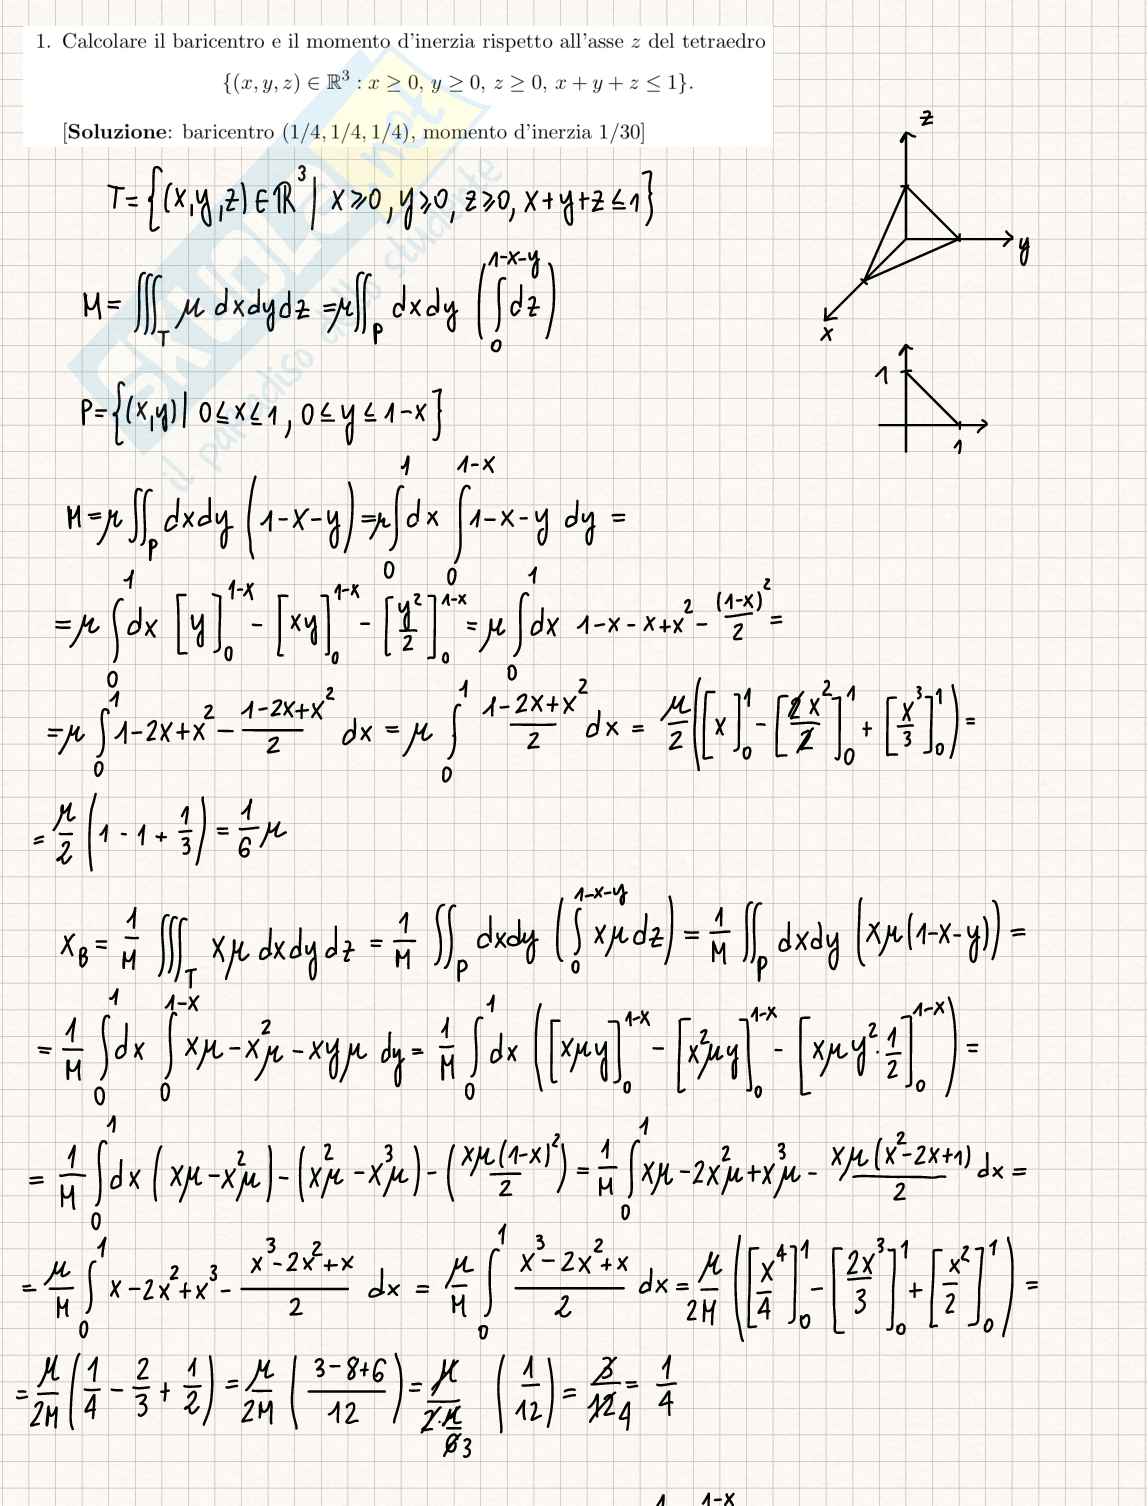 1. Calcolare il baricentro e il momento d'inerzia rispetto all'asse z del tetraedro
{(x, y, z) ∈ ℝ³ : x ≥ 0, y ≥ 0, z ≥ 0, x + y + z ≤ 1}.
[Soluzione: baricentro (1/4, 1/4, 1/4), momento d'inerzia 1/30]
z
y
x
T = {(x,y,z) ∈ ℝ³ | x ≥ 0, y ≥ 0, z ≥ 0, x+y+z ≤ 1}
M = ∭_T μ dxdydz = μ∬_P dxdy (∫_0^{1-x-y} dz)
1
1
P = {(x,y) | 0 ≤ x ≤ 1, 0 ≤ y ≤ 1-x}
M = μ∬_P dxdy (1-x-y) = μ∫_0^1 dx ∫_0^{1-x} 1-x-y dy =
= μ∫_0^1 dx [y]_0^{1-x} - [xy]_0^{1-x} - [y²/2]_0^{1-x} = μ∫_0^1 dx 1-x-x+x² - (1-x)²/2 =
= μ∫_0^1 1-2x+x² - (1-2x+x²)/2 dx = μ∫_0^1 (1-2x+x²)/2 dx = μ/2 ([x]_0^1 - [2x²/2]_0^1 + [x³/3]_0^1) =
= μ/2 (1 - 1 + 1/3) = 1/6 μ
x_B = 1/M ∭_T xμ dxdydz = 1/M ∬_P dxdy (∫_0^{1-x-y} xμ dz) = 1/M ∬_P dxdy (xμ(1-x-y)) =
= 1/M ∫_0^1 dx ∫_0^{1-x} xμ - x²μ - xyμ dy = 1/M ∫_0^1 dx ([xμy]_0^{1-x} - [x²μy]_0^{1-x} - [xμy²·1/2]_0^{1-x}) =
= 1/M ∫_0^1 dx (xμ - x²μ) - (x²μ - x³μ) - (xμ(1-x)²/2) = 1/M ∫_0^1 xμ - 2x²μ + x³μ - xμ(x²-2x+1)/2 dx =
= μ/M ∫_0^1 x - 2x² + x³ - (x³-2x²+x)/2 dx = μ/M ∫_0^1 (x³-2x²+x)/2 dx = μ/2M ([x⁴/4]_0^1 - [2x³/3]_0^1 + [x²/2]_0^1) =
= μ/2M (1/4 - 2/3 + 1/2) = μ/2M ((3-8+6)/12) = μ/(2·μ/6 3) (1/12) = 3/12 4 = 1/4
1 1-x
SKUOLA.not
il paradiso dello studente